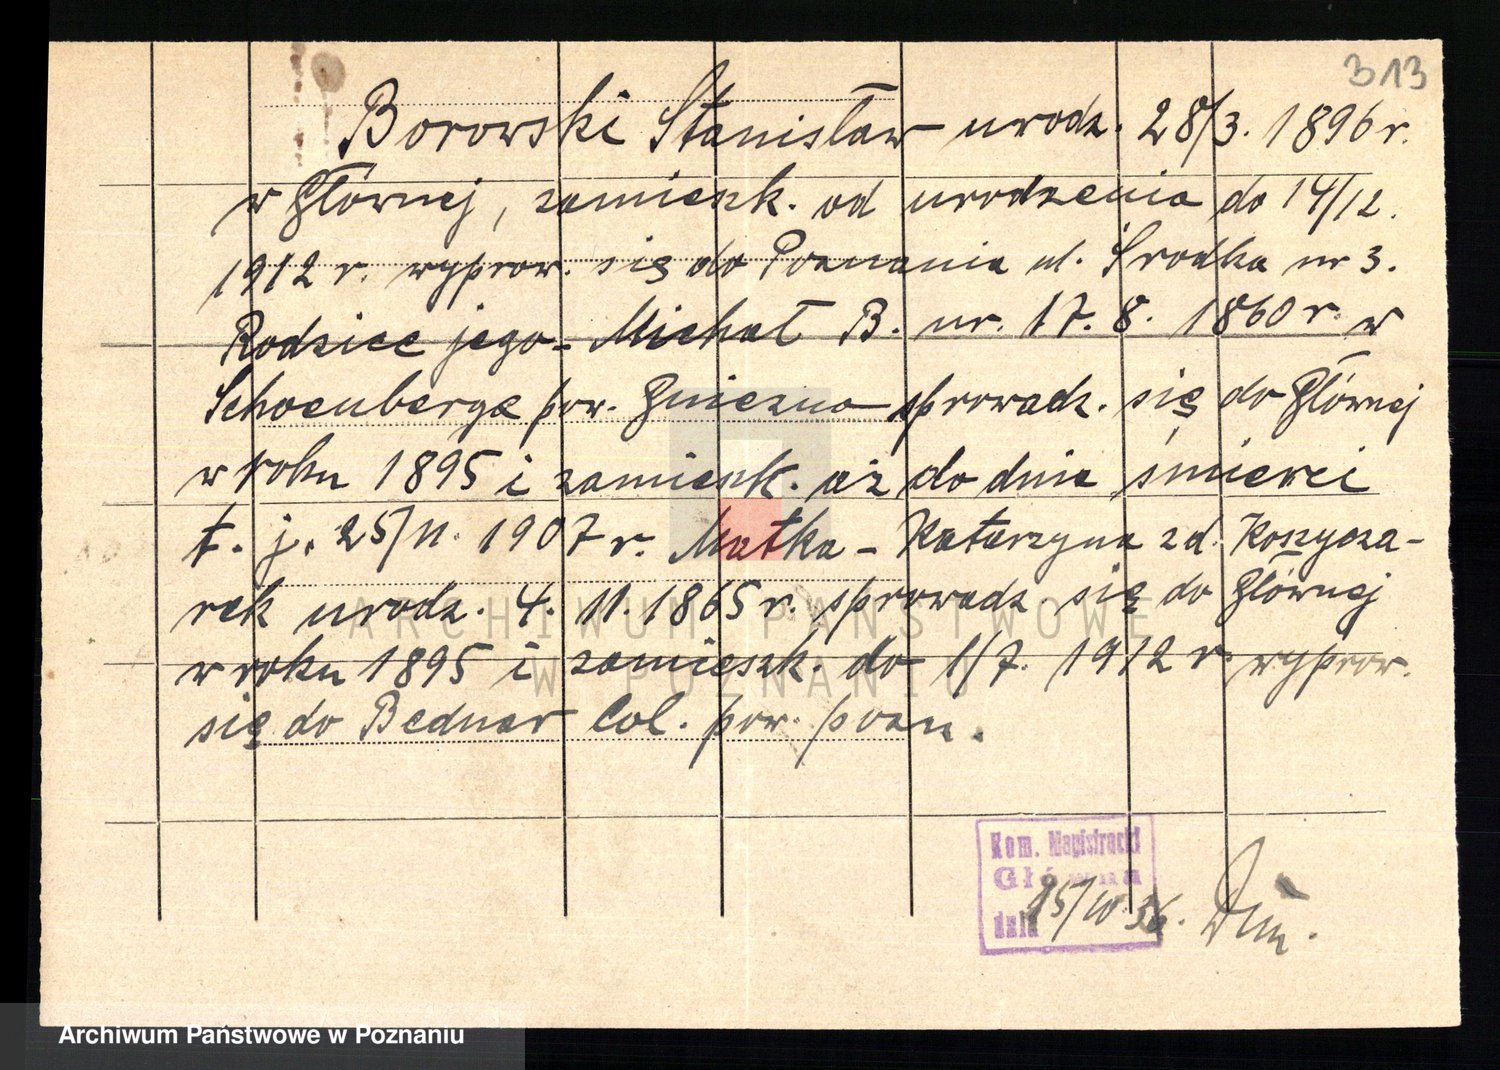 313
Borowski Stanisław urodz. 28/3. 1896 r.
w Głównej, zamieszk. od urodzenia do 14/12.
1912 r. wyprow. się do Poznania ul. Środka nr 3.
Rodzice jego - Michał B. ur. 17. 8. 1860 r. w
Schoenberge pow. Gniezno sprowadz. się do Głównej
w roku 1895 i zamieszk. aż do dnia śmierci
t. j. 25/11. 1907 r. Matka - Katarzyna zd. Koszycza-
rek urodz. 4. 11. 1865 r. sprowadz. się do Głównej
w roku 1895 i zamieszk. do 1/7. 1912 r. wyprow.
się do Bednar Col. pow. pozn.
Kom. Magistracki
Główna
dnia 25/IV. 36.
ARCHIWUM PAŃSTWOWE
W POZNANIU
Archiwum Państwowe w Poznaniu